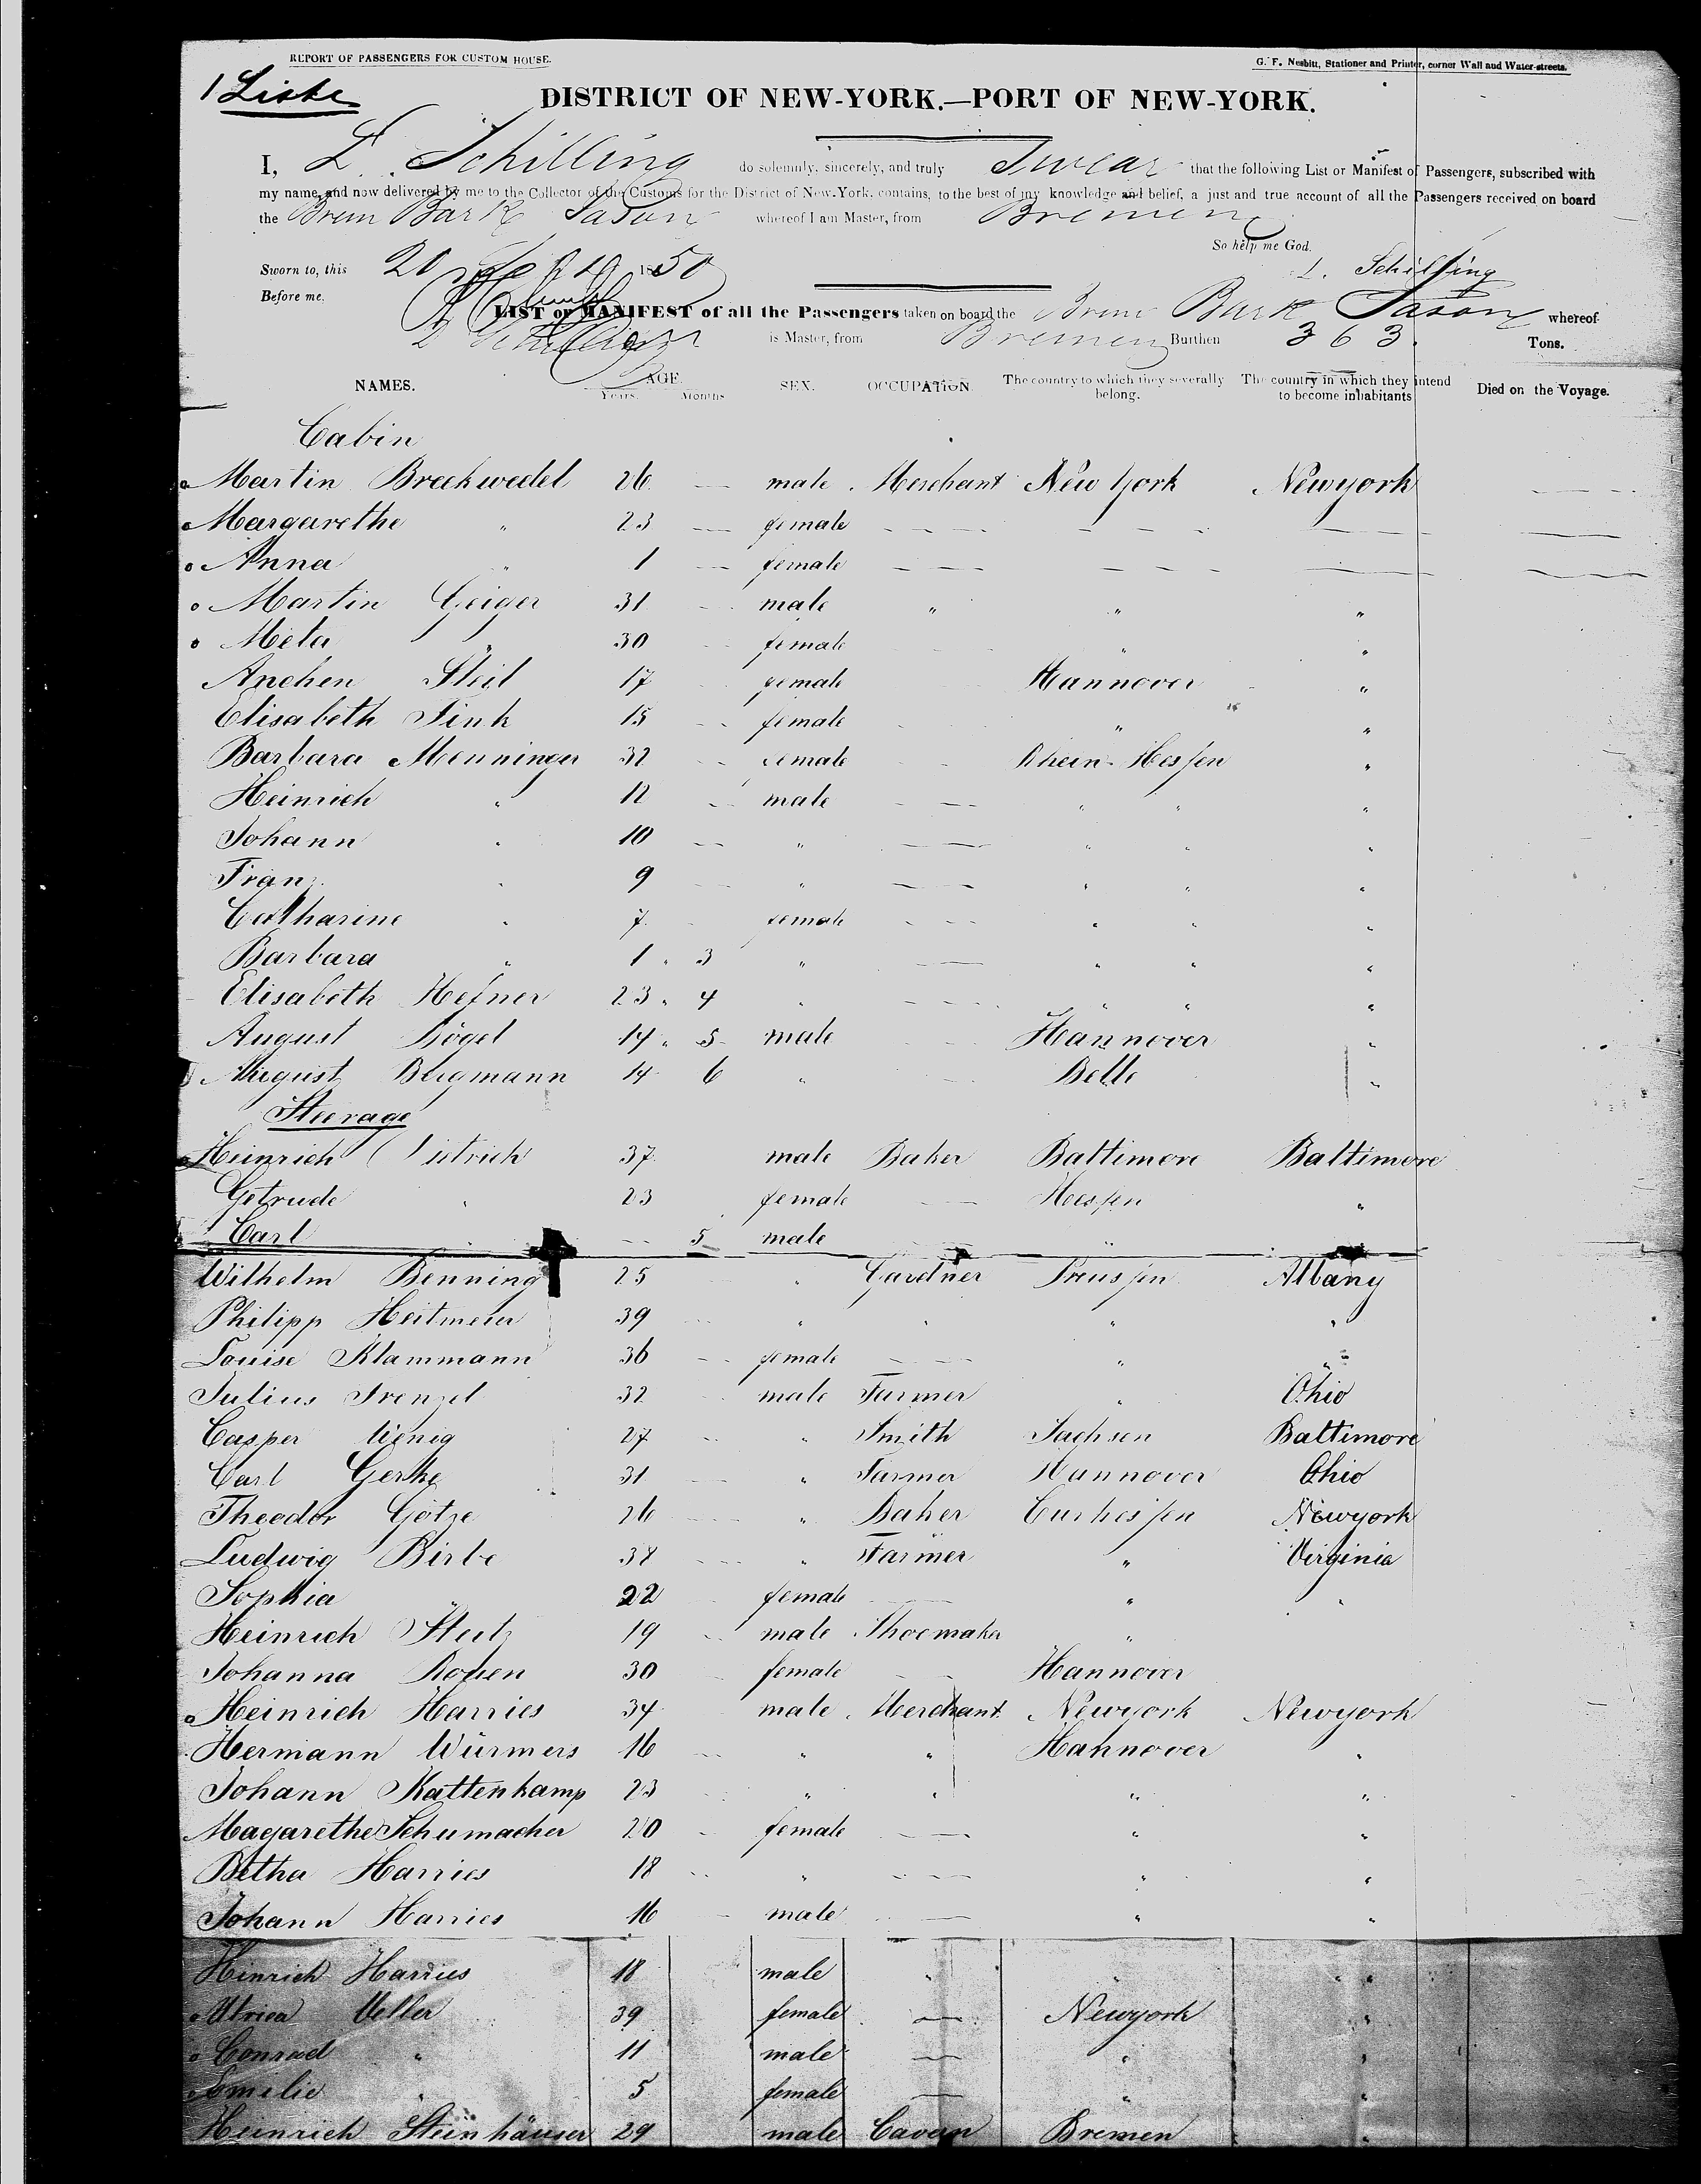 REPORT OF PASSENGERS FOR CUSTOM HOUSE.
G. F. Nesbitt, Stationer and Printer, corner Wall and Water-streets.
1 Liste
DISTRICT OF NEW-YORK.—PORT OF NEW-YORK.
I, L. Schilling do solemnly, sincerely, and truly Swear that the following List or Manifest of Passengers, subscribed with
my name, and now delivered by me to the Collector of the Customs for the District of New-York, contains, to the best of my knowledge and belief, a just and true account of all the Passengers received on board
the Brem Bark Saxon whereof I am Master, from Bremen
So help me God.
Sworn to, this 20 1850 L. Schilling
Before me,
LIST or MANIFEST of all the Passengers taken on board the Brem Bark Saxon whereof
is Master, from Bremen Burthen 363. Tons.
NAMES. AGE. Years. Months SEX. OCCUPATION. The country to which they severally belong. The country in which they intend to become inhabitants Died on the Voyage.
Cabin
Martin Breckwedel 26 — male Merchant New York Newyork
Margarethe " 23 — female
Anna " 1 — female
Martin Geiger 31 male " " "
Meta " 30 female " "
Anchen Steil 17 female Hannover "
Elisabeth Fink 15 female " "
Barbara Menninger 32 female Rhein-Hessen "
Heinrich " 12 male " " "
Johann " 10 — " — " " "
Franz " 9 — " — " " "
Catharine " 7 female " " "
Barbara " 1 " 3 " — " " "
Elisabeth Hefner 23 " 4 " " " "
August 14 " 5 male Hannover "
August Bergmann 14 6 " Belle "
Steerage
Heinrich Districh 37 male Baker Baltimore Baltimore
Getrude " 23 female Hessen "
Carl " — 5 male "
Wilhelm Benning 25 " Gardner Preussen Albany
Philipp Heitmeier 39 " " " "
Louise Klammann 36 female " "
Julius Frenzel 32 male Farmer " Ohio
Casper 27 " Smith Sachsen Baltimore
Carl Gerke 31 " Farmer Hannover Ohio
Theodor Götze 26 " Baker Curhessen Newyork
Ludwig Birbe 38 " Farmer " Virginia
Sophia " 22 female " "
Heinrich 19 male Shoemaker "
Johanna 30 female Hannover
Heinrich Harries 34 male Merchant Newyork Newyork
Hermann Würmers 16 " " Hannover "
Johann Kattenkamp 23 " " " "
Magarethe Schumacher 20 female — " "
Betha Harries 18 " " "
Johann Harries 16 male — " "
Hinrich Harries 18 male " " "
Veller 39 female — Newyork "
Conrad " 11 male — " "
Emilie " 5 female — " "
Heinrich Steinhäuser 29 male Bremen "